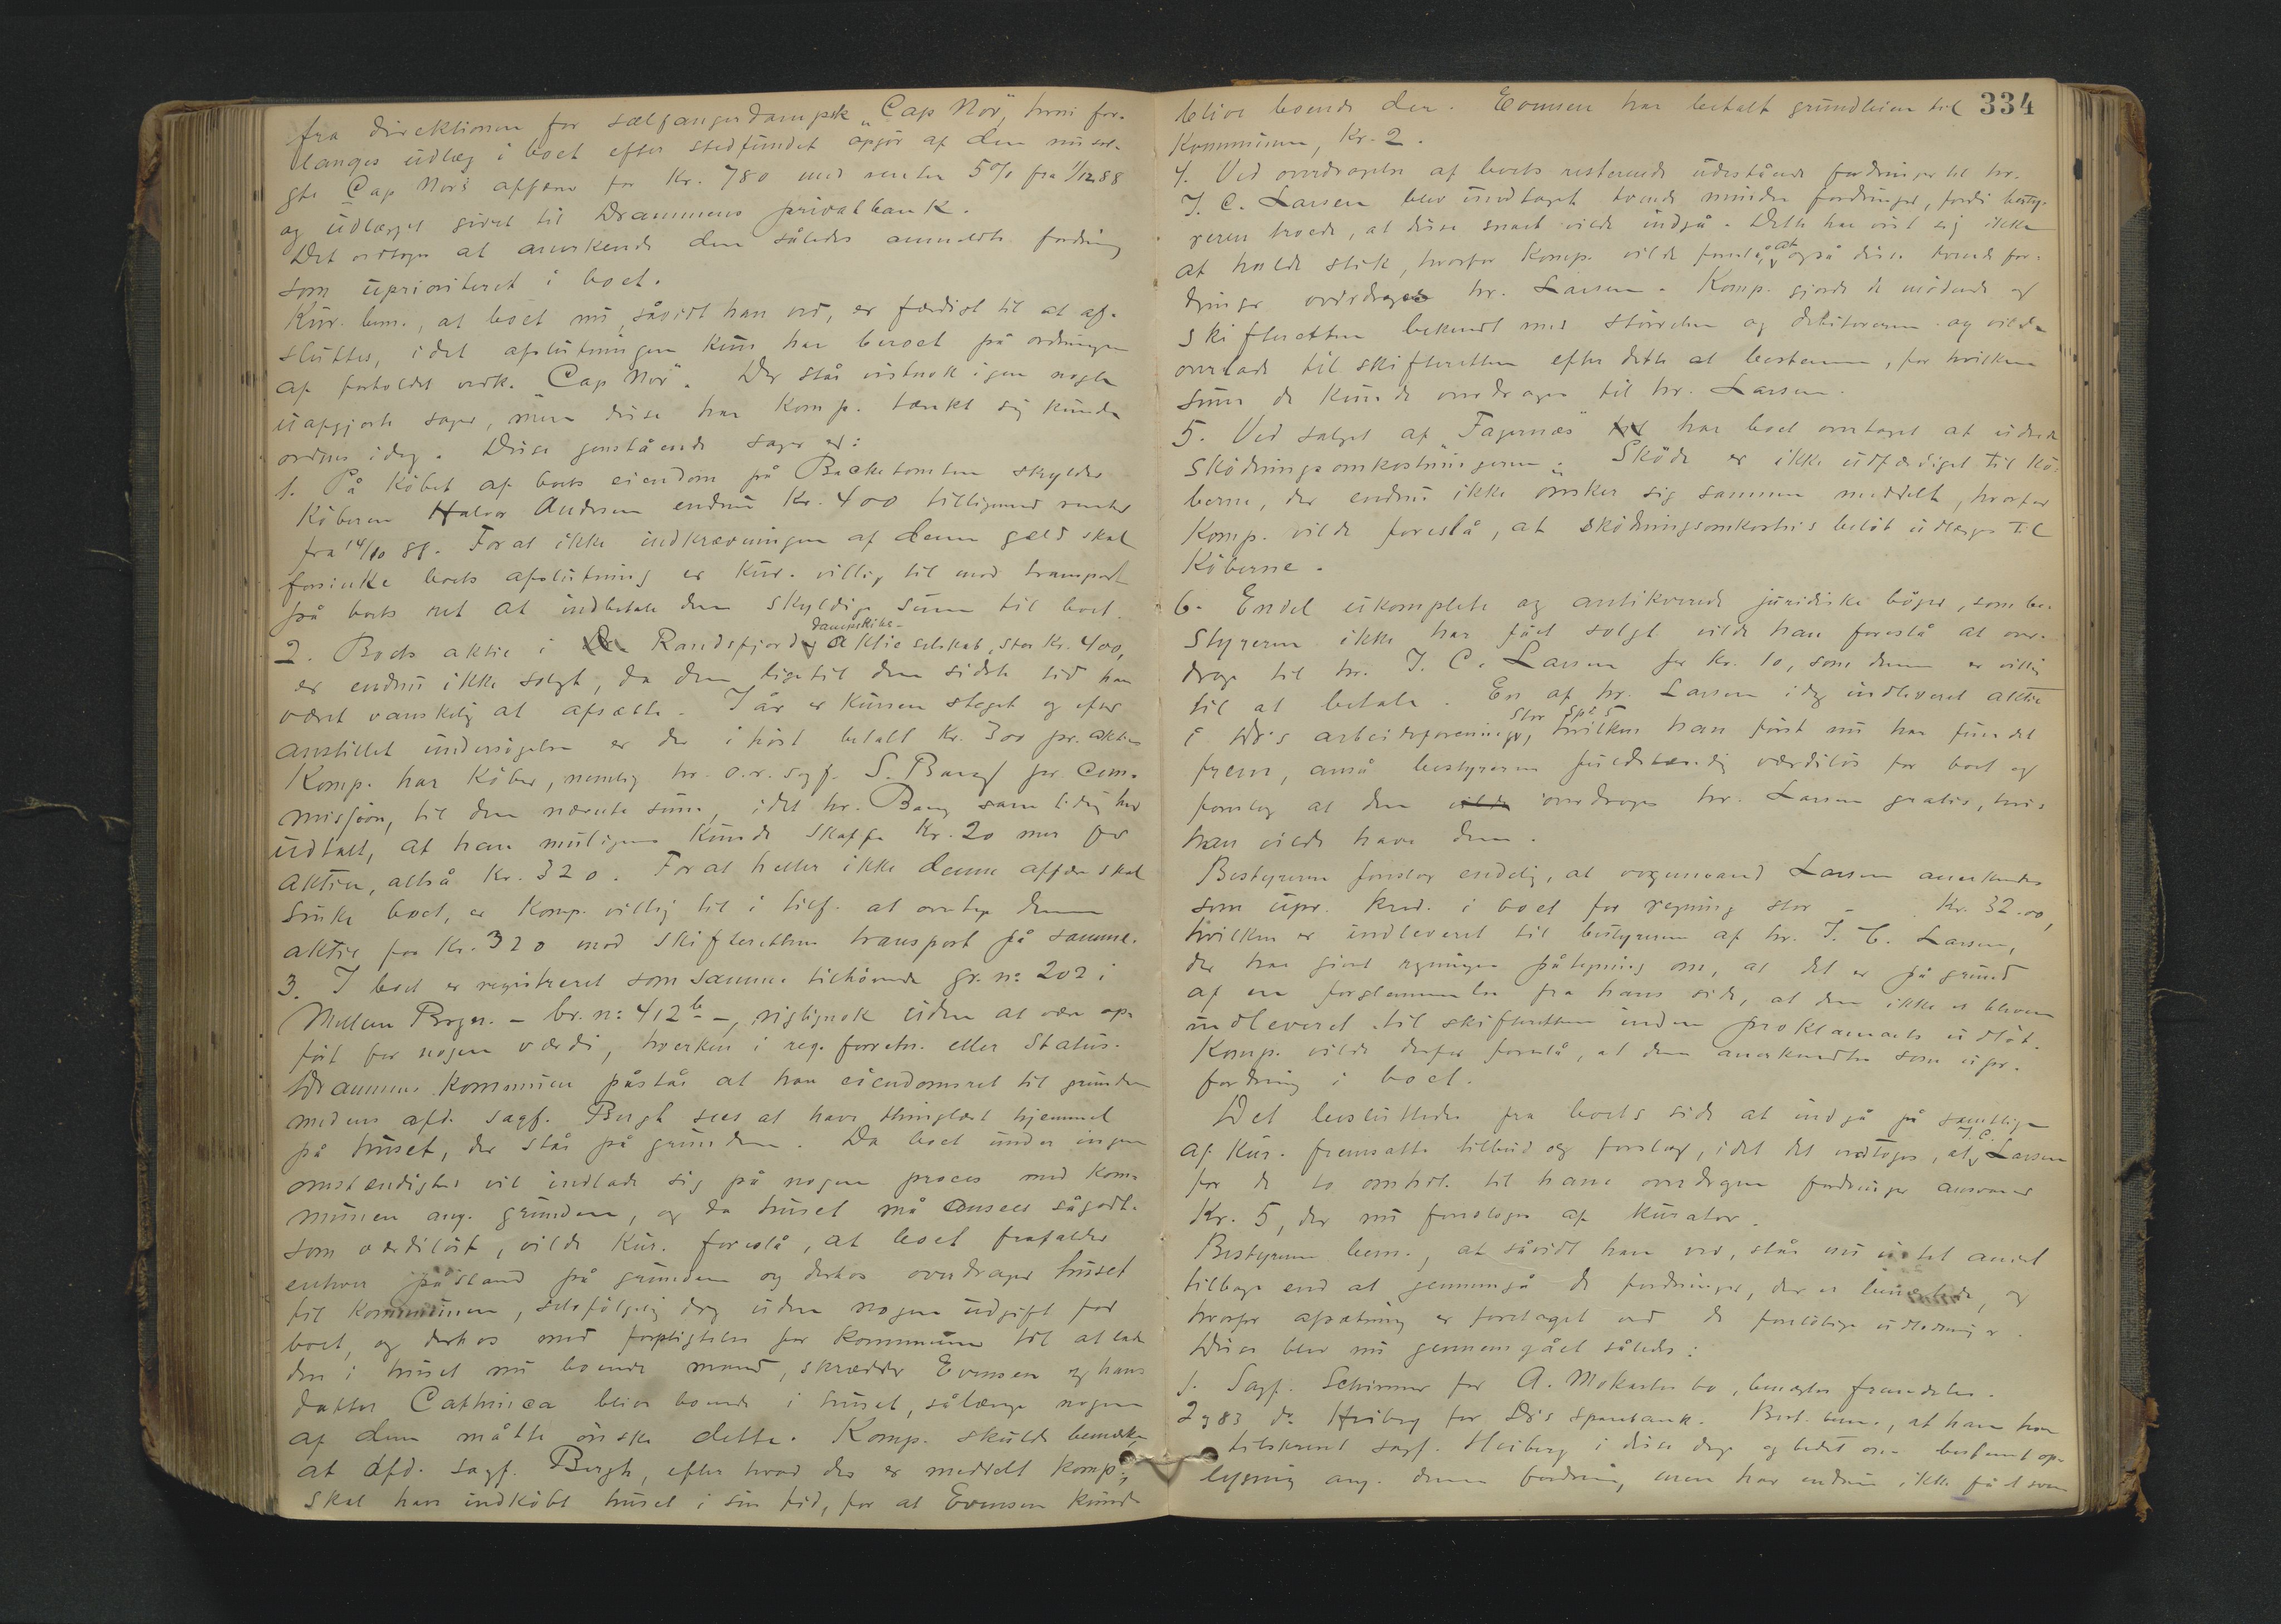 fra direktionen for sælfangerdampsk. „Cap Nor", hvori for-
langes udlæg i boet efter stedfundet opgjör af den nu sol-
gte Cap Nor's affærer for Kr. 780 med renter 5% fra 1/12 88
og udlægget givet til Drammens privatbank.
Det vedtoges at anerkende den således anmeldte fordring
som uprioriteret i boet.
Kur. bem., at boet nu, såvidt han ved, er færdigt til at af-
sluttes, idet afslutningen kun har beroet på ordningen
af forholdet vedk. „Cap Nor". Der står vistnok igen nogle
uafgjorte sager, men disse har Komp. tænkt sig kunde
ordnes idag. Disse genstående sager er:
1. På Köbet af boets eiendom på Backetomten skylder
Köberen Halvor Andersen endnu Kr. 400 tilligemed renter
fra 14/10 88. For at ikke indkrævningen af denne gæld skal
forsinke boets afslutning er Kur. villig til mod transport
på boets ret at indbetale den skyldige sum til boet.
2. Boets aktie i Randsfjords dampskibs-aktieselskab, stor Kr. 400,
er endnu ikke solgt, da den ligetil den sidste tid har
været vanskelig at afsætte. I år er kursen steget og efter
anstillet undersögelse er der i höst betalt Kr. 300 pr. aktie
Komp. har Köber, nemlig hr. o.r. sagf. S. Bang per com-
missjon, til den nævnte sum, idet hr. Bang samtidig har
udtalt, at han muligens kunde skaffe Kr. 20 mer for
aktien, altså Kr. 320. For at heller ikke denne affære skal
sinke boet, er Komp. villig til i tilf. at overtage denne
aktie for Kr. 320 mod skifterettens transport på samme.
3. I boet er registreret som samme tilhörende gr. n: 202 i
Mellem Brogen. – br. n: 412 b –, rigtignok uden at være op-
fört for nogen værdi, hverken i reg. forretn. eller Status.
Drammens Kommune påstår at have eiendomsret til grunden
medens afd. sagf. Bergh sees at have thinglæst hjemmel
på huset, der står på grunden. Da boet under ingen
omstændighed vil indlade sig på nogen proces med Kom-
munen ang. grunden, og da huset må ansees sågodt-
som værdilöst, vilde Kur. foreslå, at boet frafalder
enhver påstand på grunden og derhos overdrager huset
til Kommunen, selvfölgelig dog uden nogen udgift for
boet, og derhos med forpligtelse for Kommunen til at lade
den i huset nu boende mand, skrædder Evensen og hans
datter Cathinca blive boende i huset, sålænge nogen
af dem måtte önske dette. Komp. skulde bemærke
at afd. sagf. Bergh, efter hvad der er meddelt komp.,
skal have indköbt huset i sin tid, for at Evensen kunde
334
blive boende der. Evensen har betalt grundleien til
Kommunen, Kr. 2.
4. Ved overdragelse af boets resterende udestående fordringer til hr.
J. C. Larsen blev undtaget tvende mindre fordringer, fordi besty-
reren troede, at disse snart vilde indgå. Dette har vist sig ikke
at holde stik, hvorfor Komp. vilde foreslå, at også disse tvende for-
dringer overdrages hr. Larsen. Komp. gjorde de mödende og
skifteretten bekendt med störrelsen og debitorerne og vilde
overlade til skifteretten efter dette at bestemme, for hvilken
sum de kunde overdrages til hr. Larsen.
5. Ved salget af „Fagernæs" har boet overtaget at udrede
sködningsomkostningerne. Sköde er ikke udfærdiget til Kö-
berne, der endnu ikke önsker sig samme meddelt, hvorfor
Komp. vilde foreslå, at sködningsomkostn.s belöb udlægges til
Köberne.
6. Endel ukomplete og antikverede juridiske böger, som be-
styreren ikke har fået solgt vilde han foreslå at over-
drage til hr. J. C. Larsen for Kr. 10, som denne er villig
til at betale. En af hr. Larsen idag indleveret aktie
i Dr's arbeiderforening, stor Spd 5, hvilken han först nu har fundet
frem, anså bestyreren fuldstændig værdilös for boet og
foreslog at den overdrages hr. Larsen gratis, hvis
han vilde have den.
Bestyreren foreslog endelig, at vognmand Larsen anerkendes
som upr. kred. i boet for regning stor – Kr. 32.00,
hvilken er indleveret til bestyreren af hr. J. C. Larsen,
der har givet regningen påtegning om, at det er på grund
af en forglemmelse fra hans side, at den ikke er bleven
indleveret til skifteretten inden proklamaets udlöb.
Komp. vilde derfor foreslå, at den anerkendtes som upr.
fordring i boet.
Det besluttedes fra boets side at indgå på samtlige
af Kur. fremsatte tilbud og forslag, idet det vedtoges, at J. C. Larsen
for de to omhdl. til ham overdragne fordringer ansvarer
Kr. 5, der nu foresloges af kurator.
Bestyreren bem., at såvidt han ved, står nu intet andet
tilbage end at gennemgå de fordringer, der er benægtede, og
hvorfor afsætning er foretaget ved de forelöbige udlodninger.
Disse blev nu gennemgået således:
1. Sagf. Schirmer for A. Mokastes bo, benægtes fremdeles.
2 og 83 do Heiberg for Dr's sparebank. Best. bem., at han har
tilskrevet sagf. Heiberg i disse dage og bedet om bestemt op-
lysning ang. denne fordring, men har endnu ikke fået svar